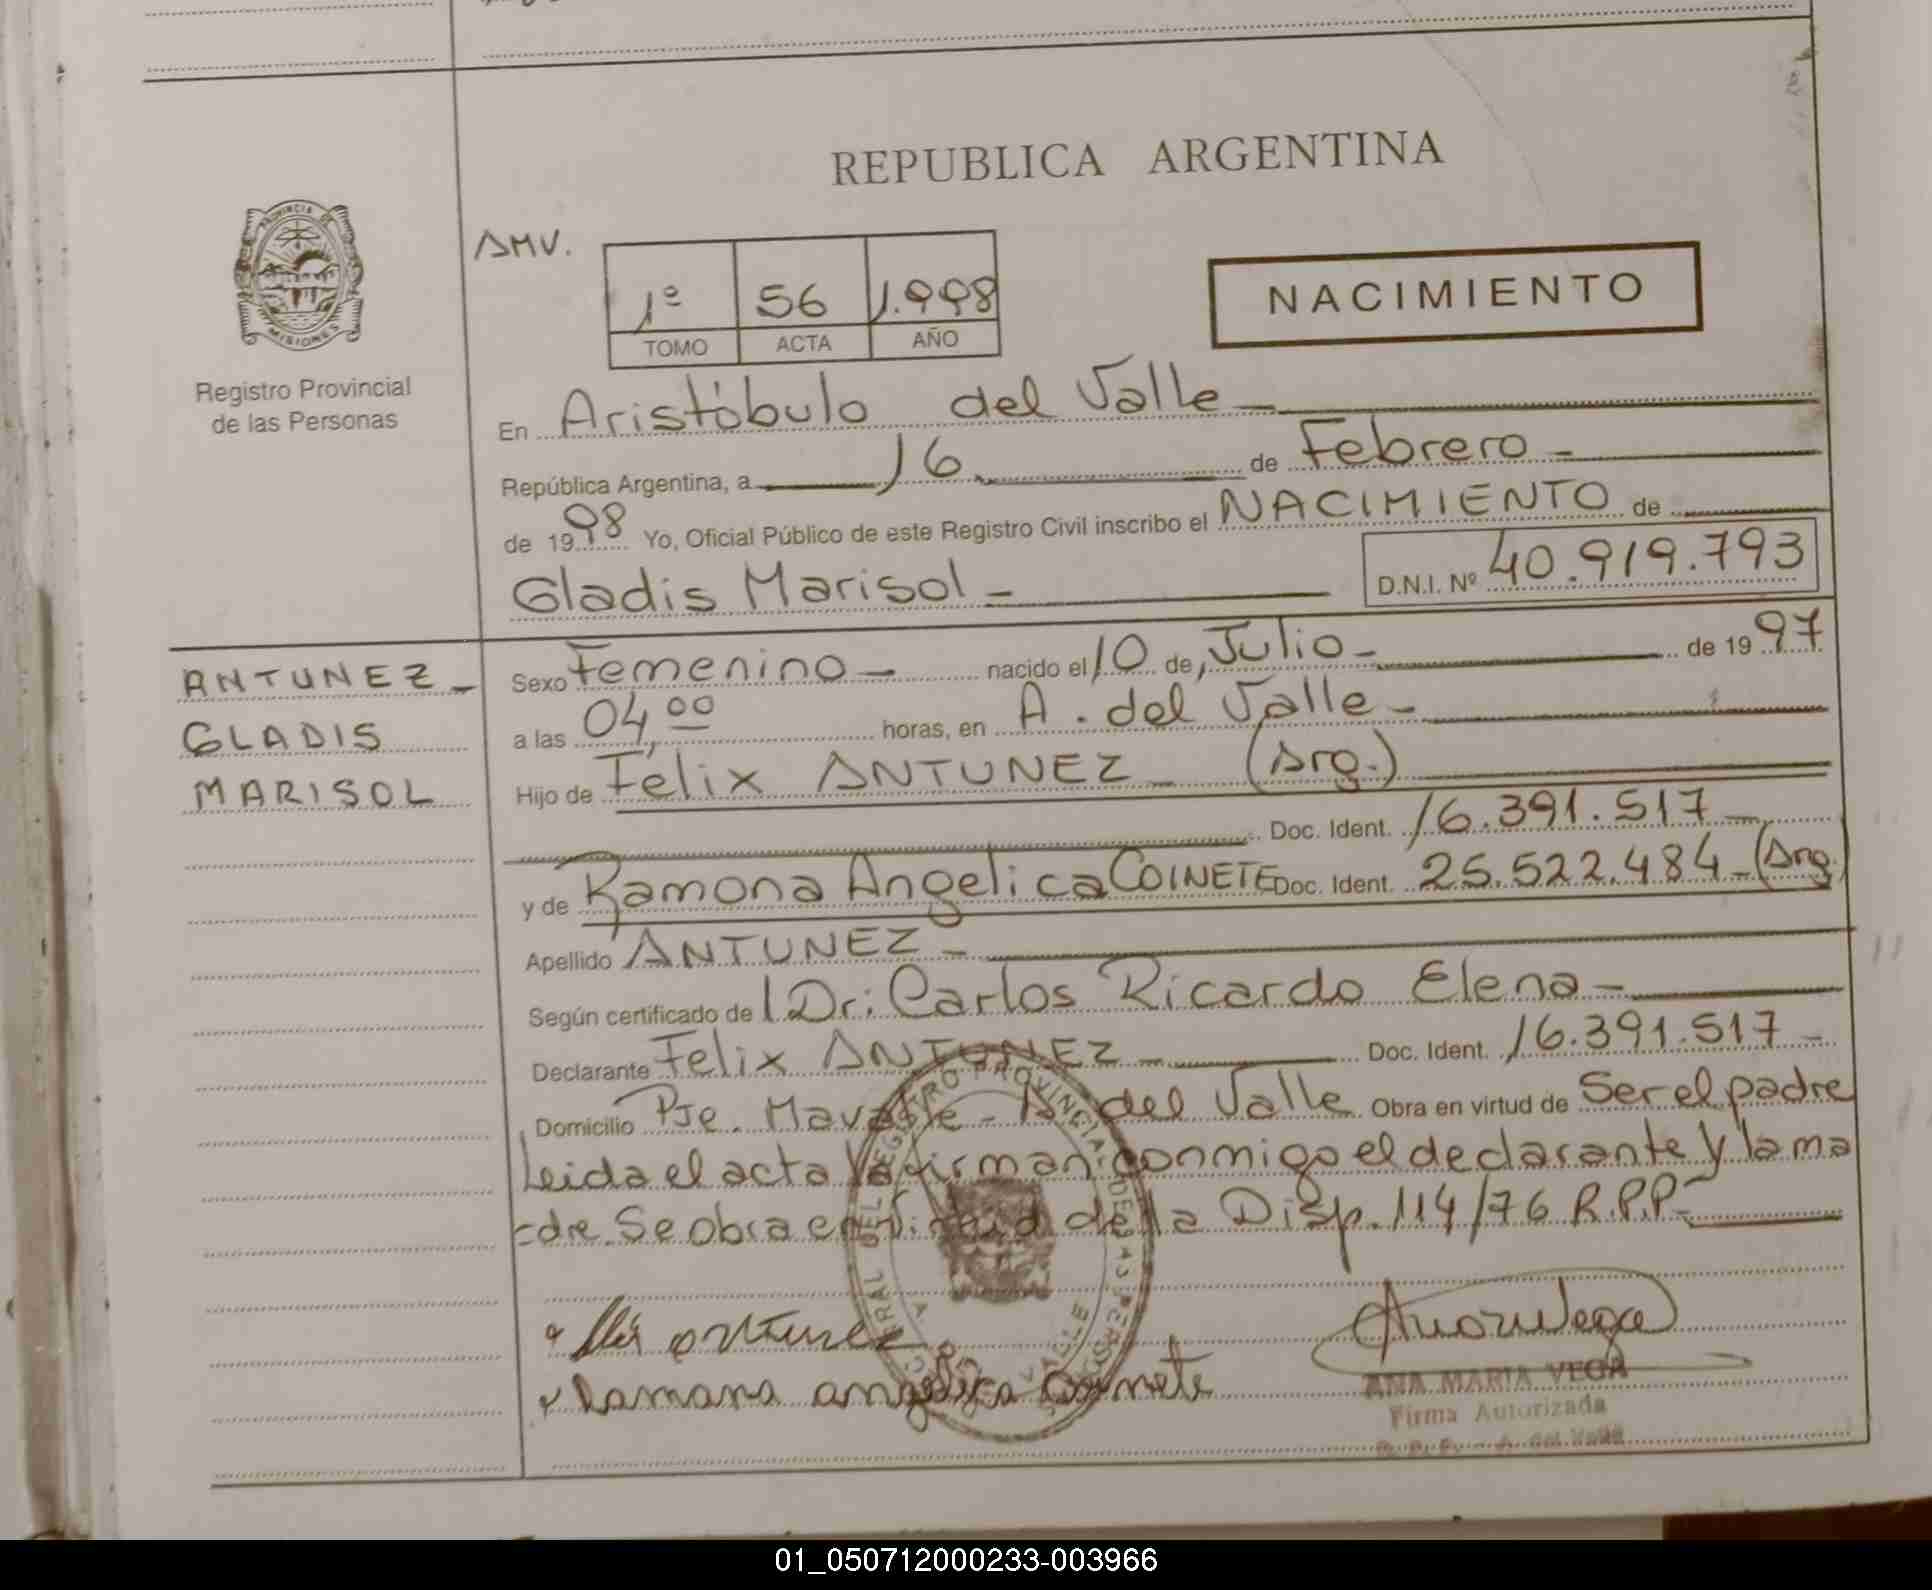 REPUBLICA ARGENTINA
PROVINCIA DE MISIONES
Registro Provincial
de las Personas
AMV.
1º 56 1.998
TOMO ACTA AÑO
NACIMIENTO
En Aristóbulo del Valle
República Argentina, a 16 de Febrero
de 1998 Yo, Oficial Público de este Registro Civil inscribo el NACIMIENTO de
Gladis Marisol D.N.I. Nº 40.919.793
ANTUNEZ
GLADIS
MARISOL
Sexo Femenino nacido el 10 de Julio de 1997
a las 04,00 horas, en A. del Valle
Hijo de Félix ANTUNEZ (Arg.)
Doc. Ident. 16.391.517
y de Ramona Angelica COINETE Doc. Ident. 25.522.484 (Arg.)
Apellido ANTUNEZ
Según certificado de l Dr: Carlos Ricardo Elena
Declarante Felix ANTUNEZ Doc. Ident. 16.391.517
Domicilio Pje. A. del Valle Obra en virtud de Ser el padre
Leida el acta la firman conmigo el declarante y la ma
dre. Se obra en virtud de la Disp. 114/76 R.P.P.
antunez
Ramona angelica
ANA MARIA VEGA
Firma Autorizada
01_050712000233-003966